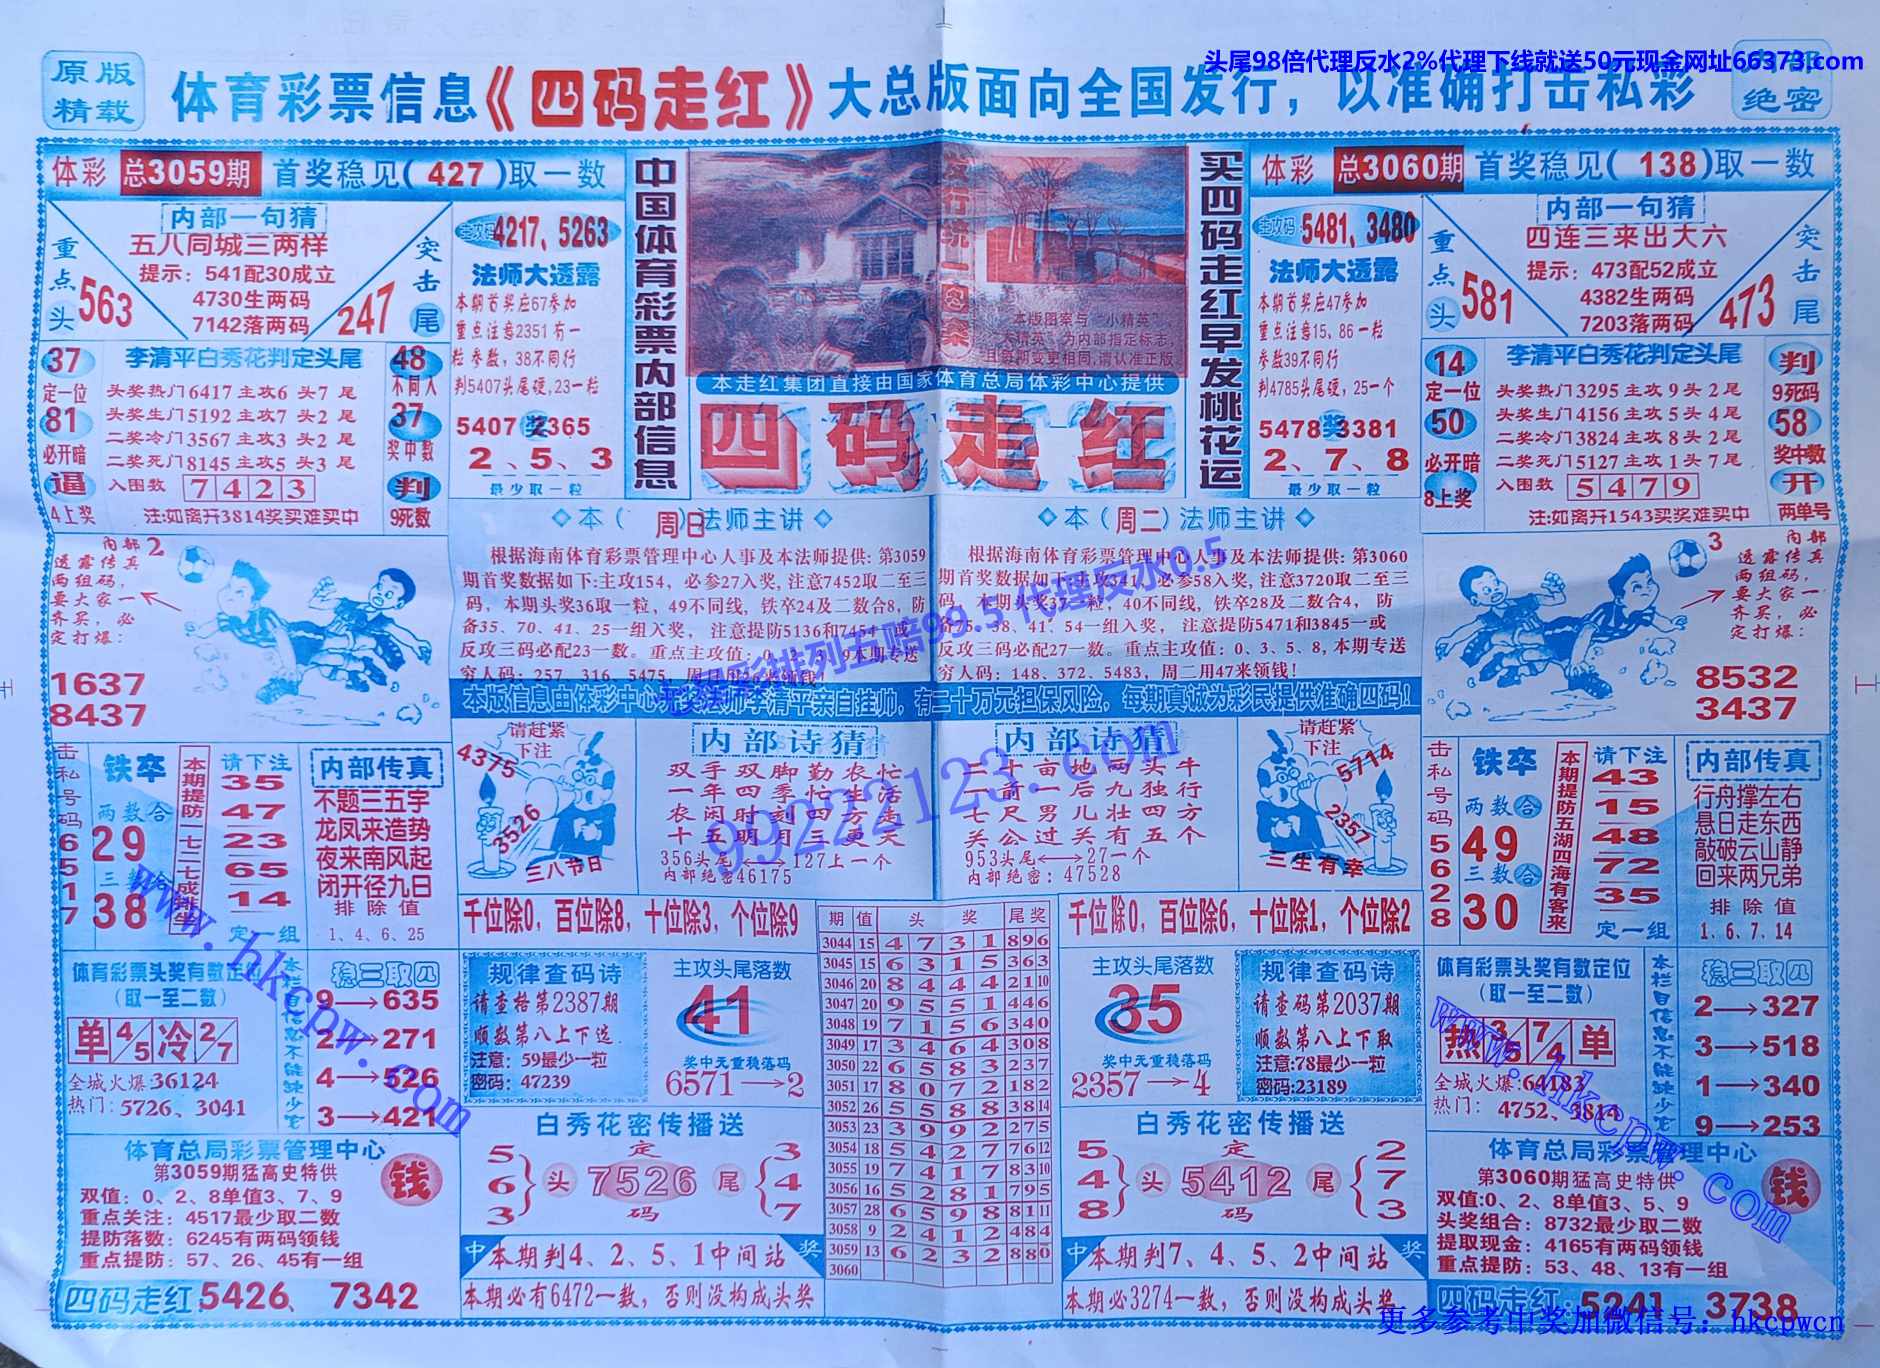 头尾98倍代理反水2%代理下线就送50元现金网址66373.com
原版
精载
体育彩票信息《四码走红》大总版面向全国发行，以准确打击私彩
绝密
体彩 总3059期 首奖稳见(427)取一数
内部一句猜
五八同城三两样
提示：541配30成立
4730生两码
7142落两码
重点头
563
突击尾
247
主攻码 4217、5263
法师大透露
本期首奖应67参加
重点注意2351有一
粒参数，38不同行
判5407头尾硬，23一粒
5407 奖 2365
2、5、3
最少取一粒
中国体育彩票内部信息
发行统一图案
本版图案与“小精英”、
大精英”为内部指定标志，
且每期变更相同，请认准正版。
本走红集团直接由国家体育总局体彩中心提供
四码走红
买四码走红早发桃花运
体彩 总3060期 首奖稳见(138)取一数
主攻码 5481、3480
法师大透露
本期首奖应47参加
重点注意15、86一粒
参数39不同行
判4785头尾硬，25一个
5478 奖 3381
2、7、8
最少取一粒
内部一句猜
四连三来出大六
提示：473配52成立
4382生两码
7203落两码
重点头
581
突击尾
473
37
定一位
81
必开暗
逼
4上奖
李清平白秀花判定头尾
头奖热门6417主攻6头7尾
头奖生门5192主攻7头2尾
二奖冷门3567主攻3头2尾
二奖死门8145主攻5头3尾
入围数 7423
注:如离开3814奖买难买中
48
不同入
37
奖中数
判
9死数
14
定一位
50
必开暗
8上奖
李清平白秀花判定头尾
头奖热门3295主攻9头2尾
头奖生门4156主攻5头4尾
二奖冷门3824主攻8头2尾
二奖死门5127主攻1头7尾
入围数 5479
注:如离开1543买奖难买中
判
9死码
58
奖中数
开
两单号
内部2
透露传真
两组码，
要大家一
齐买，必
定打爆：
1637
8437
◇本（周日）法师主讲◇
根据海南体育彩票管理中心人事及本法师提供：第3059
期首奖数据如下:主攻154，必参27入奖，注意7452取二至三
码，本期头奖36取一粒，49不同线，铁卒24及二数合8，防
备35、70、41、25一组入奖，注意提防5136和7454一或
反攻三码必配23一数。重点主攻值：0、2、3、9本期专送
穷人码：257、316、5475，周日用26来领钱
◇本（周二）法师主讲◇
根据海南体育彩票管理中心人事及本法师提供：第3060
期首奖数据如下:主攻341，必参58入奖，注意3720取二至三
码，本期头奖37一粒，40不同线，铁卒28及二数合4，防
备75、38、41、54一组入奖，注意提防5471和3845一或
反攻三码必配27一数。重点主攻值：0、3、5、8，本期专送
穷人码：148、372、5483，周二用47来领钱！
3
内部
透露传真
两组码，
要大家一
齐买，必
定打爆：
8532
3437
本版信息由体彩中心兑奖法师李清平亲自挂帅，有二十万元担保风险，每期真诚为彩民提供准确四码！
击私号码65177
铁卒
两数合
29
三数合
38
本期提防一七二七成排坐
请下注
35
47
23
65
14
定一组
内部传真
不题三五字
龙凤来造势
夜来南风起
闭开径九日
排除值
1、4、6、25
请赶紧
下注
4375
3526
三八节日
内部诗猜
双手双脚勤农忙
一年四季忙生活
农闲时刻四方走
十五明月三更天
356头尾⟷127上一个
内部绝密46175
内部诗猜
二十亩地两头牛
一前一后九独行
七尺男儿壮四方
关公过关有五个
953头尾⟷27一个
内部绝密：47528
请赶紧
下注
5714
2357
三生有幸
击私号码55628
铁卒
两数合
49
三数合
30
本期提防五湖四海有客来
请下注
43
15
48
72
35
定一组
内部传真
行舟撑左右
悬日走东西
敲破云山静
回来两兄弟
排除值
1、6、7、14
千位除0，百位除8，十位除3，个位除9
千位除0，百位除6，十位除1，个位除2
期 值 头奖 尾奖
3044 15 4731 896
3045 15 6315 363
3046 20 8444 2110
3047 20 9551 446
3048 19 7156 340
3049 17 3464 308
3050 22 6583 237
3051 17 8072 182
3052 26 5588 3814
3053 23 3992 275
3054 18 5427 7612
3055 19 7417 8310
3056 16 5281 795
3057 28 6598 8111
3058 9 2412 484
3059 13 6232 880
3060
体育彩票头奖有数定位
（取一至二数）
单 4/5 冷 2/7
全城火爆:36124
热门：5726、3041
本栏自信息不能缺少它
稳三取四
9→635
2→271
4→526
3→421
规律查码诗
请查格第2387期
顺数第八上下选
注意：59最少一粒
密码：47239
主攻头尾落数
41
奖中无重稳落码
6571→2
主攻头尾落数
35
奖中无重稳落码
2357→4
规律查码诗
请查码第2037期
顺数第八上下取
注意:78最少一粒
密码:23189
体育彩票头奖有数定位
（取一至二数）
热 3/5 7/4 单
全城火爆:64183
热门：4752、3814
本栏自信息不能缺少它
稳三取四
2→327
3→518
1→340
9→253
体育总局彩票管理中心
第3059期猛高史特供
双值：0、2、8单值3、7、9
重点关注：4517最少取二数
提防落数：6245有两码领钱
重点提防：57、26、45有一组
钱
四码走红:5426、7342
白秀花密传播送
5
6
3
头
定
7526
码
尾
3
4
7
中 本期判4、2、5、1中间站 奖
本期必有6472一数，否则没构成头奖
白秀花密传播送
5
4
8
头
定
5412
码
尾
2
7
3
中 本期判7、4、5、2中间站 奖
本期必3274一数，否则没构成头奖
体育总局彩票管理中心
第3060期猛高史特供
双值:0、2、8单值3、5、9
头奖组合：8732最少取二数
提取现金：4165有两码领钱
重点提防：53、48、13有一组
钱
四码走红:5241、3738
99222123.com
www.hkcpw.com
www.hkcpw.com
更多参考中奖加微信号：hkcpwcn